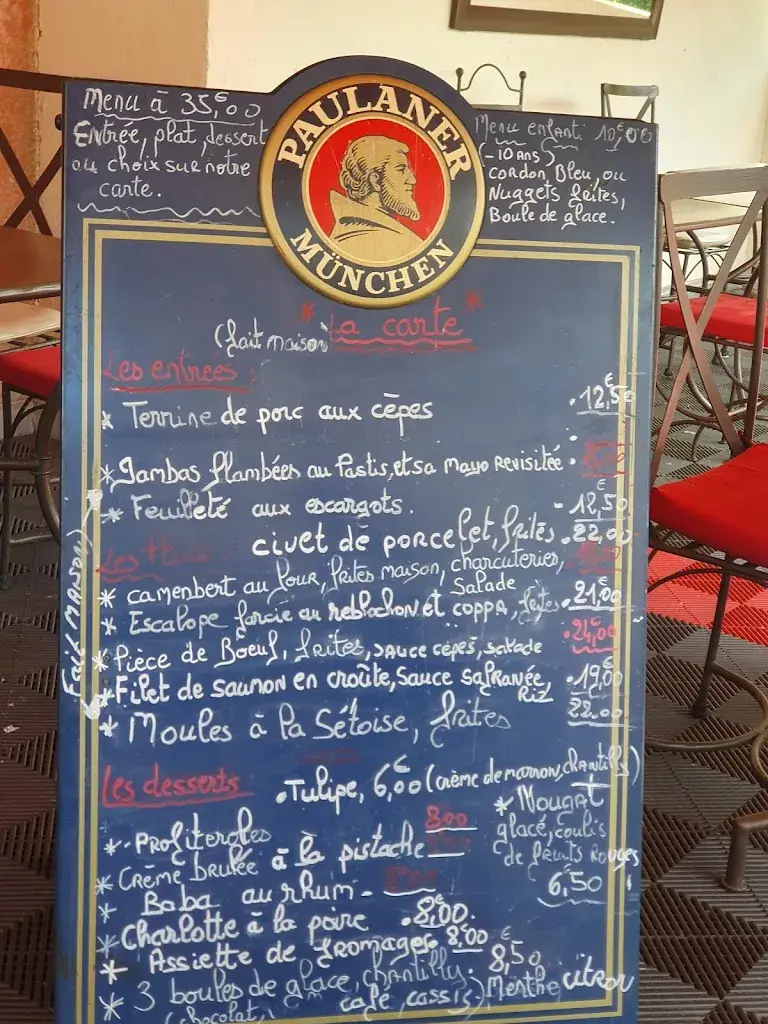 Menu à 35,00
Entrée, plat, dessert
au choix sur notre
carte.
PAULANER
MÜNCHEN
Menu enfant: 10,00
(-10 ans)
Cordon Bleu, ou
Nuggets frites,
Boule de glace.
(fait maison) * La carte *
Les entrées:
* Terrine de porc aux cèpes . 12,50€
* Gambas flambées au Pastis, et sa Mayo Revisitée.
* Feuilleté aux escargots. . 18,50€
Les Plats
civet de porcelet, frites . 22,00
* camembert au four, frites maison, charcuteries,
salade
* Escalope farcie au reblochon et coppa, frites . 21,00€
* Pièce de Boeuf, frites, sauce cèpes, salade . 24,00
* Filet de saumon en croûte, sauce safranée, . 19,00
Riz
* Moules à la Sétoise, frites 22.00
Fait MAISON
Les desserts
. Tulipe, 6,00€ (crème de marron, chantilly)
* Profiteroles 8,00
* Nougat
glacé, coulis
de fruits Rouges
6,50
* Crème brulée à la pistache
* Baba au rhum -
* Charlotte à la poire . 8,00€.
* Assiette de fromages. 8,00€
* 3 boules de glace, chantilly. 8,50
(chocolat, café, cassis) Menthe citron